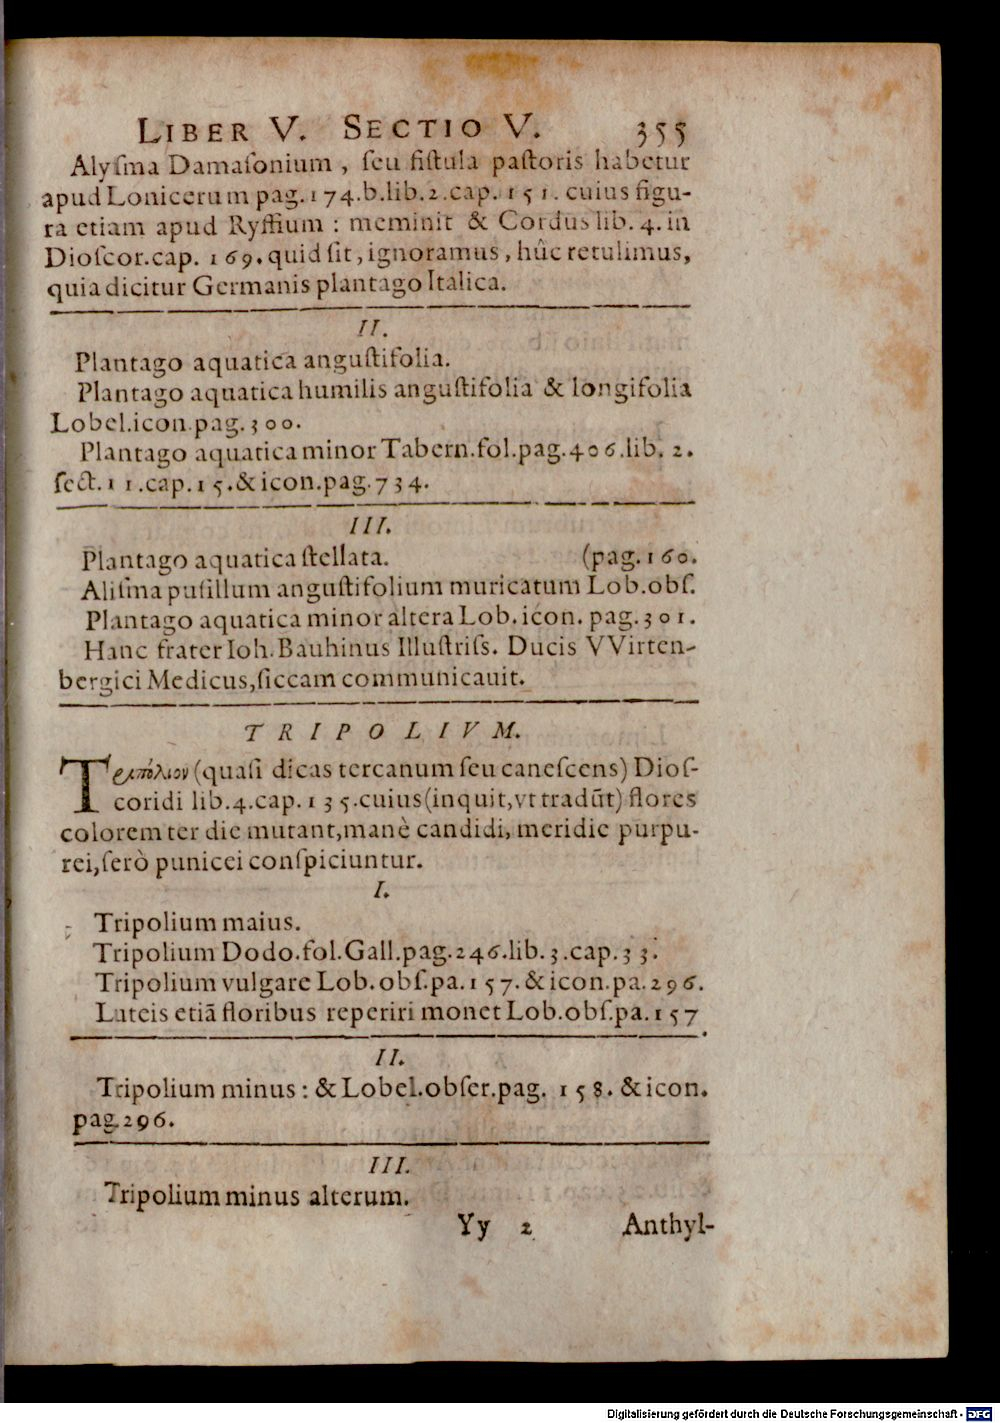 LIBER V. SECTIO V. 355
Alyſma Damaſonium, ſeu fiſtula paſtoris habetur
apud Lonicerum pag.174.b.lib.2.cap.151. cuius figu-
ra etiam apud Ryffium : meminit & Cordus lib.4.in
Dioſcor.cap. 169. quid ſit, ignoramus, hûc retulimus,
quia dicitur Germanis plantago Italica.
II.
Plantago aquatica anguſtifolia.
Plantago aquatica humilis anguſtifolia & longifolia
Lobel.icon.pag.300.
Plantago aquatica minor Tabern.fol.pag.406.lib. 2.
ſect.11.cap.15.& icon.pag.734.
III.
Plantago aquatica ſtellata. (pag.160.
Aliſma puſillum anguſtifolium muricatum Lob.obſ.
Plantago aquatica minor altera Lob.icon. pag.301.
Hanc frater Ioh.Bauhinus Illuſtriſs. Ducis VVirten-
bergici Medicus, ſiccam communicauit.
TRIPOLIVM.
Τριπόλιον (quaſi dicas tercanum ſeu caneſcens) Dioſ-
coridi lib.4.cap.135.cuius (inquit,vt tradūt) flores
colorem ter die mutant, manè candidi, meridie purpu-
rei, ſerò punicei conſpiciuntur.
I.
Tripolium maius.
Tripolium Dodo.fol.Gall.pag.246.lib.3.cap.33.
Tripolium vulgare Lob.obſ.pa.157.& icon.pa.296.
Luteis etiā floribus reperiri monet Lob.obſ.pa.157.
II.
Tripolium minus : & Lobel.obſer.pag. 158. & icon.
pag.296.
III.
Tripolium minus alterum.
Yy 2 Anthyl-
Digitalisierung gefördert durch die Deutsche Forschungsgemeinschaft - DFG